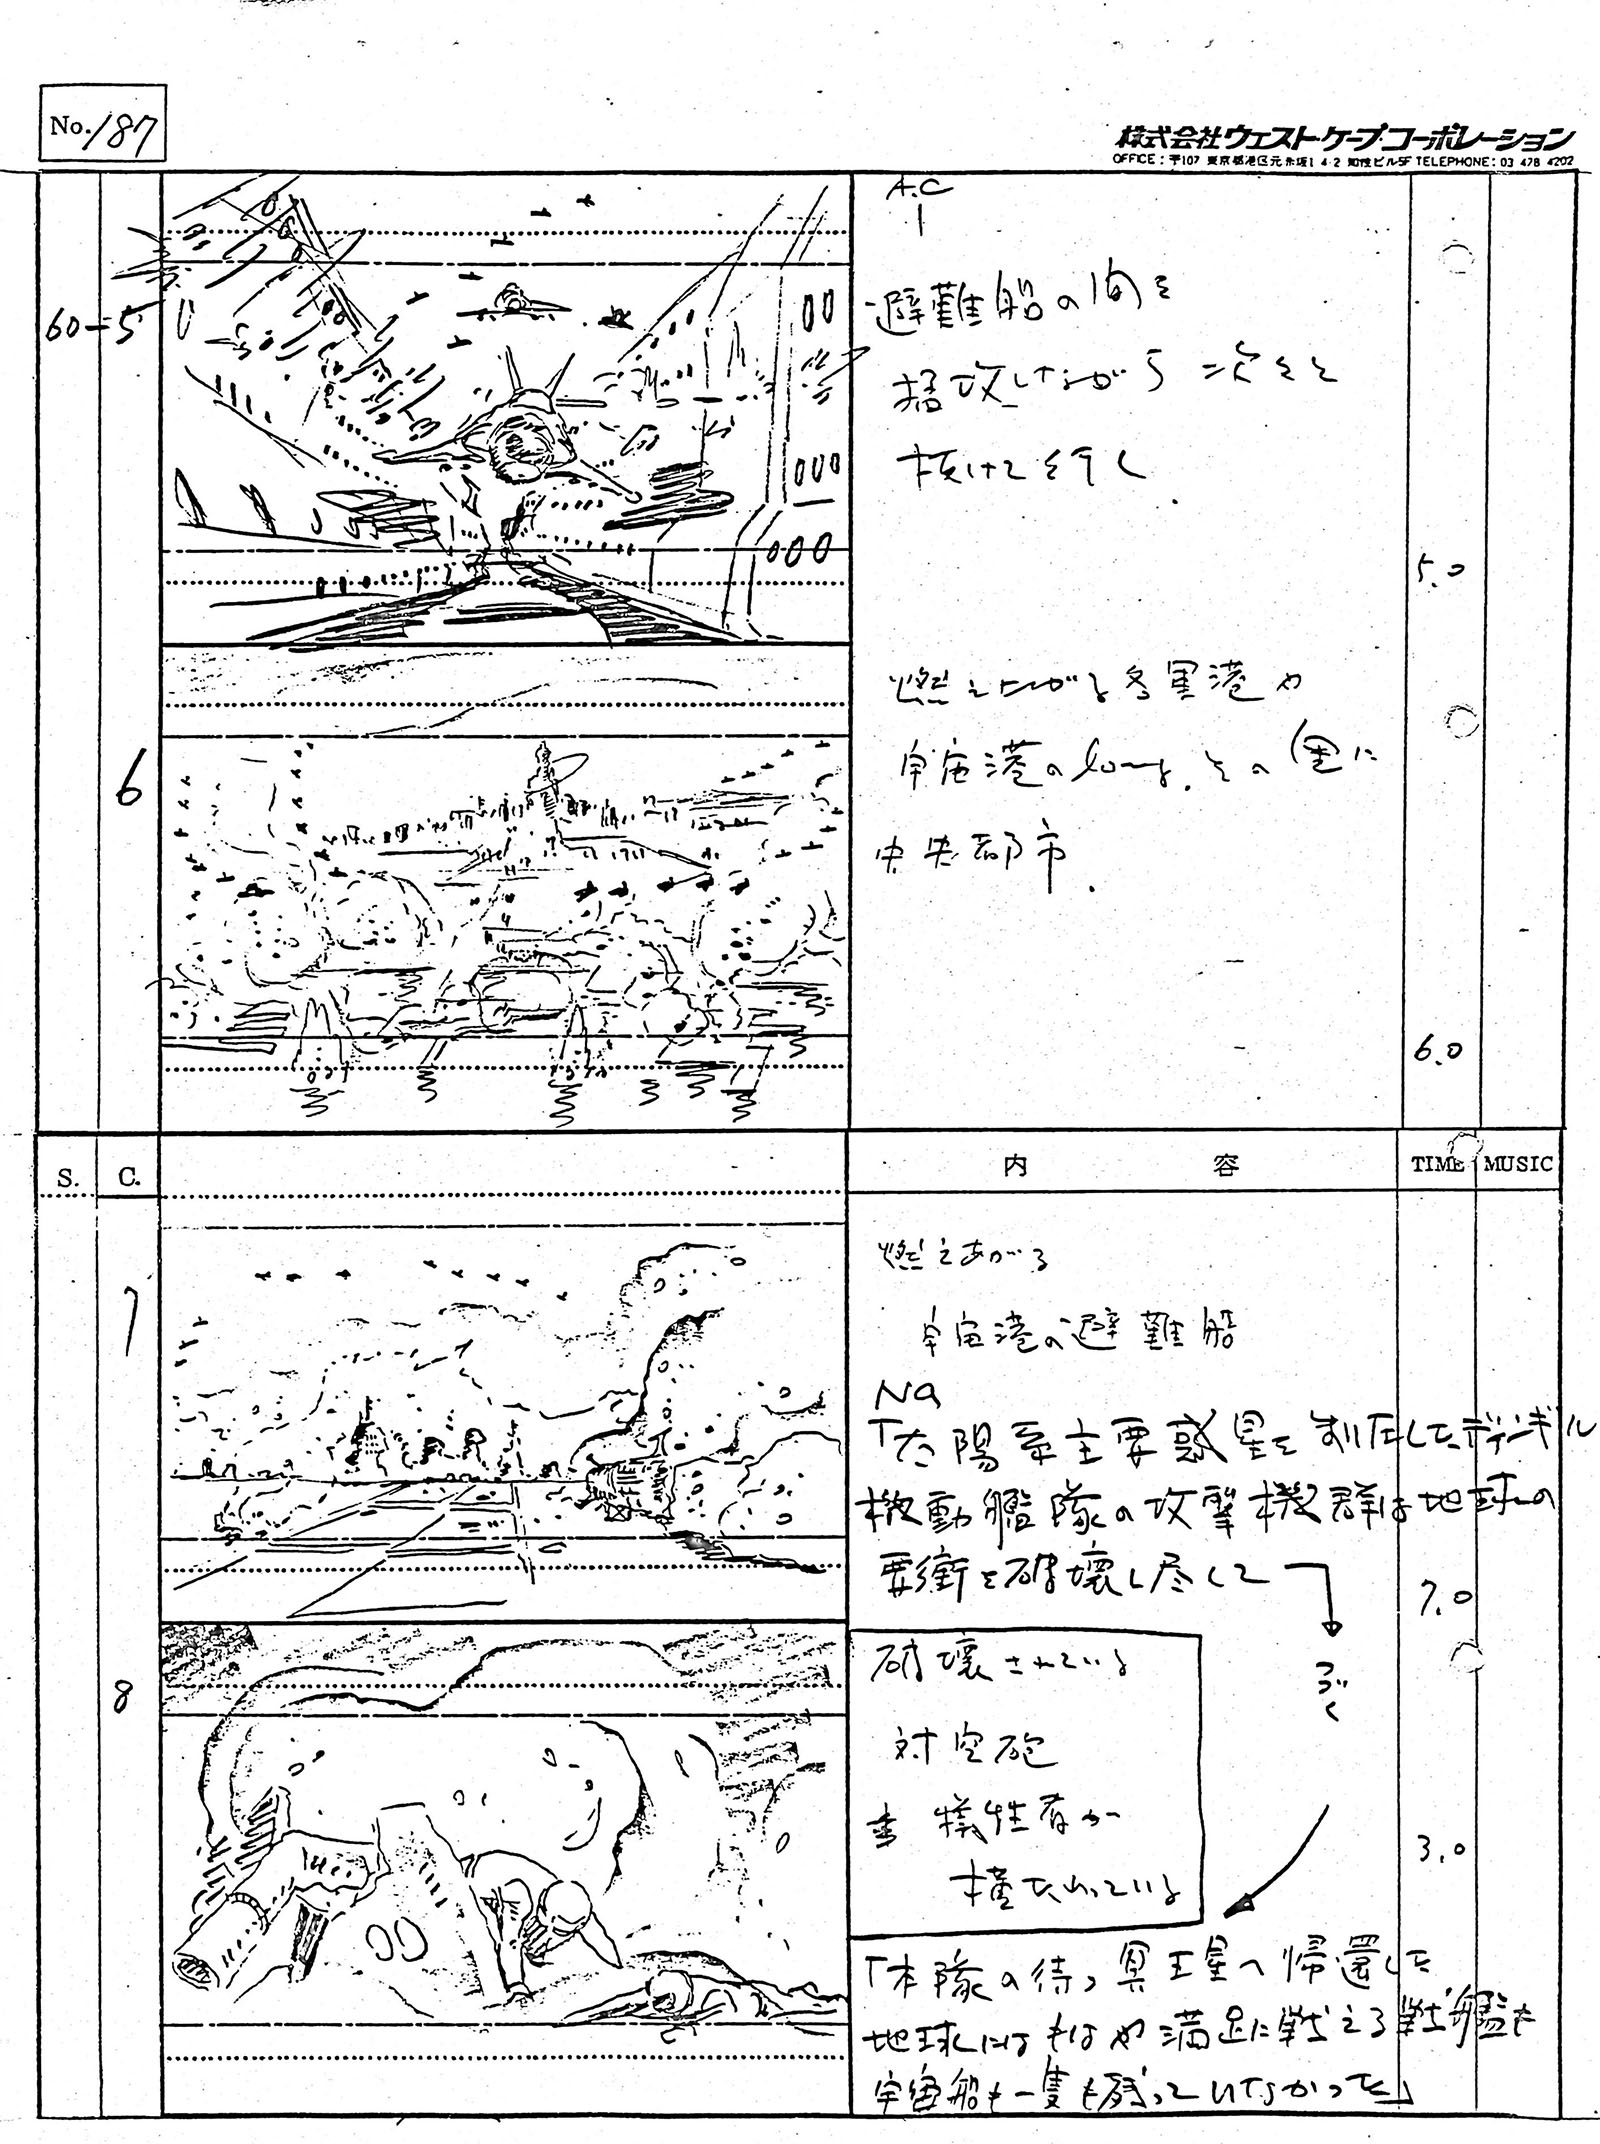 No. 187
株式会社ウエスト・ケープ・コーポレーション
OFFICE：〒107 東京都港区元赤坂1 4-2 知性ビル5F TELEPHONE：03 478 4202
60-5
A.C
避難船の間を
掃攻しながら 次々と
抜けて行く
5.0
6
燃え上がる各軍港や
宇宙港のlong. その奥に
中央都市.
6.0
S.
C.
内 容
TIME
MUSIC
7
燃えあがる
宇宙港の避難船
Na
「太陽系主要惑星を制圧したディンギル
機動艦隊の攻撃機群は地球の
要衝を破壊し尽して
つづく
7.0
8
破壊されている
対空砲
犠牲者が
横たわっている
3.0
「本隊の待つ冥王星へ帰還した
地球にはもはや満足に戦える戦艦も
宇宙船も一隻も残っていなかった」